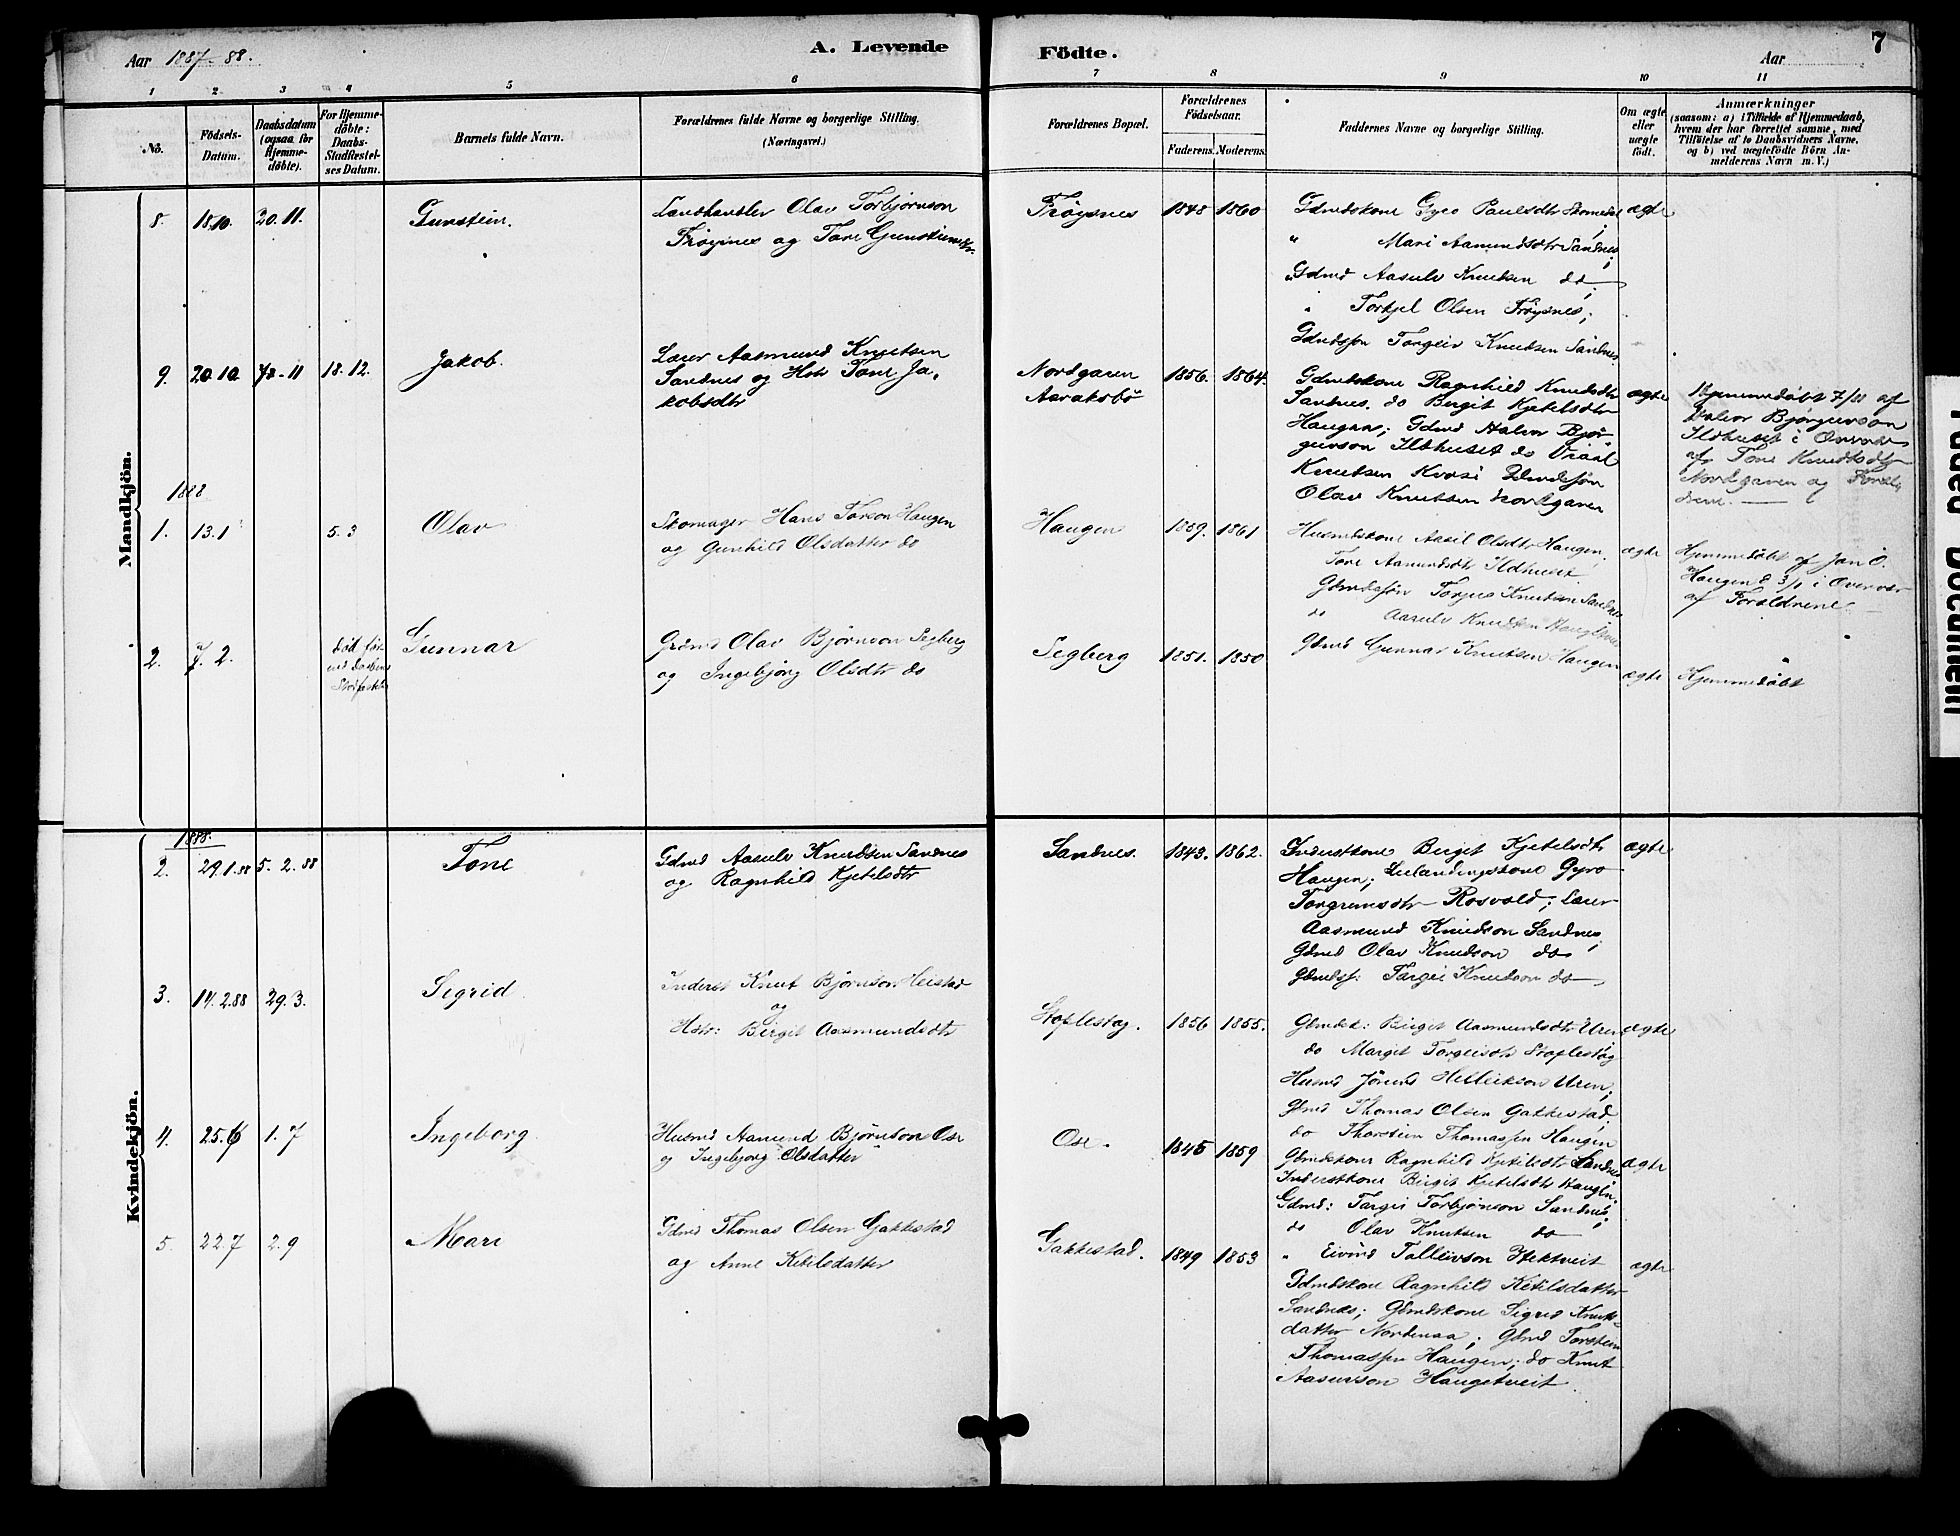 Aar 1887-88.
A. Levende
Födte.
Aar
7
1 2 3 4 5 6 7 8 9 10 11
No.
Födsels-
Datum.
Daabsdatum
(ogsaa for
Hjemme-
döbte).
For Hjemme-
döbte:
Daabs-
Stadfæstel-
ses Datum.
Barnets fulde Navn.
Forældrenes fulde Navne og borgerlige Stilling.
(Næringsvei.)
Forældrenes Bopæl.
Forældrenes
Födselsaar.
Faderens. Moderens.
Faddernes Navne og borgerlige Stilling.
Om ægte
eller
uægte
födt.
Anmærkninger
(saasom: a) i Tilfælde af Hjemmedaab,
hvem der har forrettet samme, med
Tilföielse af to Daabsvidners Navne,
og b) ved uægtefödte Börn An-
melderens Navn m. V.)
Mandkjön.
8. 18.10. 20.11.
Gunstein.
Landhandler Olav Torbjörnson
Fröysnes og Tone Gunsteinsdtr.
Fröysnes 1848 1860
Gdmdskone Gyro Paulsdtr
" Mari Aamundsdtr Sandnes;
Gdmd Aasulv Knudsen do;
" Torkjel Olsen Fröysnes;
Gdmdssön Torgeir Knudsen Sandnes
ægte
9. 20 10 11 18.12.
Jakob.
Lærer Aasmund Knutsen
Sandnes og Hstr Tone Ja-
kobsdtr
Nordgaren
Aaraksbö
1856. 1864.
Gdmdskone Ragnhild Knudsdtr
Sandnes. do Birgit Kjetilsdtr
Haugen; Gdmd Halvor Björ-
gulvson Ildhuset do Vraal
Knutsen Gdmdssön
Olav Knutsen Nordgaren
ægte
Hjemmedöbt 7/11 af
Halvor Björgulvson
Ildhuset i Overvær
af Tone Knudsdtr
Nordgaren og Foræl-
drene.
1888
1. 13.1 5.3
Olav
Skomager Hans Torson Haugen
og Gunhild Olsdatter do
Haugen 1859. 1861
Husmdskone Aasil Olsdtr Haugen,
Tone Aamundsdtr Ildhuset.
Gdmdssön Torjus Knutsen Sandnes
do Aasulv Knudsen
ægte
Hjemmedöbt af Jon O.
Haugen d. i Overvær
af Forældrene
2. 7. 2.
Död för-
end Daabens
Stadfæstelse
Gunnar
Grdmd Olav Björnson Segberg
og Ingebjörg Olsdtr do
Segberg 1851. 1850
Gdmd Gunnar Knutsen Haugen
ægte
Hjemmedöbt
Kvindekjön.
1888.
2. 29.1.88 5. 2. 88
Tone
Gdmd Aasulv Knudsen Sandnes
og Ragnhild Kjetilsdtr
Sandnes. 1843. 1862.
Inderstkone Birgit Kjetilsdtr
Haugen; Gyro
Torgrimsdtr Rosvold; Lærer
Aasmund Knudson Sandnes
Gdmd Olav Knudson do;
Gdmdss: Targei Knudson do
ægte
3. 14.2.88 29.3.
Sigrid.
Inderst Knut Björnson Heistad
og
Hstr: Birgit Aasmundsdtr
Stoflestög. 1856 1855.
Gdmdsk: Birgit Aasmundsdtr Uren
do Margit Torgeisdtr Stoflestög
Husmd Jörund Uren;
Gdmd Thomas Olsen Gakkestad
do Thorstein Thomassen Haugen
ægte
4. 25.6 1.7
Ingeborg.
Husmd Aamund Björnson Ose
og Ingebjorg Olsdatter
Ose. 1845 1859
Gdmdskone Ragnhild Kjetilsdtr Sandnes
Inderstkone Birgit Kjetilsdtr Haugen
Gdmd: Targei Torbjönson Sandnes;
do Olav Knutsen do
" Eivind Tolleivson Hektveit
ægte
5. 22.7 2.9
Mari
Gdmd Thomas Olsen Gakkestad
og Anne Ketilsdatter
Gakkestad. 1849 1853
Gdmdskone Ragnhild Ketilsdatter
Sandnes; Gdmdskone Sigrid Knuts-
datter Nordenaa; Gdmd Torstein
Thomassen Haugen; do Knut
Aasulvson Haugetveit.
ægte